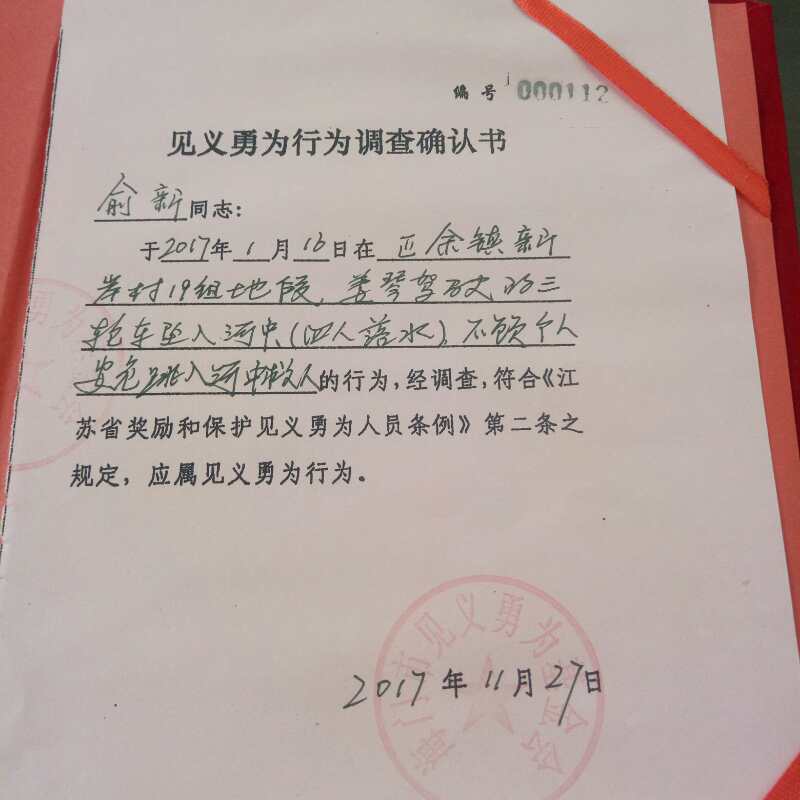 编号 000112
见义勇为行为调查确认书
俞新同志：
于2017年1月16日在正余镇新
岸村19组地段，姜琴驾驶的三
轮车坠入河中（四人落水），不顾个人
安危跳入河中救人的行为，经调查，符合《江
苏省奖励和保护见义勇为人员条例》第二条之
规定，应属见义勇为行为。
海门市见义勇为基金会
2017年11月27日